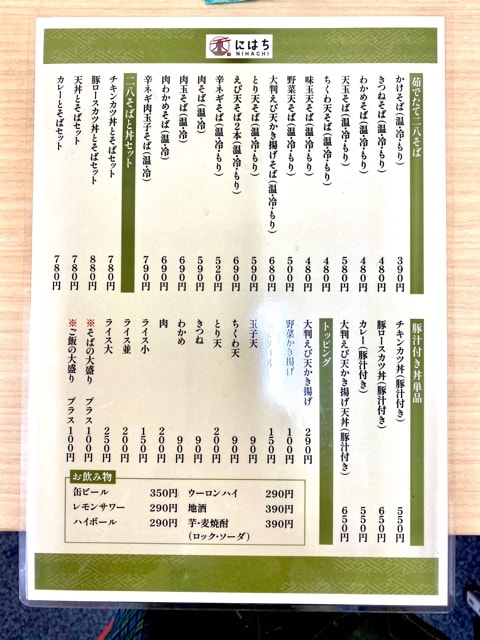 にはち
NIHACHI
茹でたて二八そば
かけそば(温・冷・もり) 390円
きつねそば(温・冷・もり) 480円
わかめそば(温・冷・もり) 480円
天玉そば(温・冷・もり) 580円
ちくわ天そば(温・冷・もり) 480円
味玉そば(温・冷・もり) 480円
野菜天そば(温・冷・もり) 500円
大判えび天かき揚げそば(温・冷・もり) 680円
とり天そば(温・冷・もり) 590円
えび天そば2本(温・冷・もり) 690円
辛ネギそば(温・冷・もり) 520円
肉そば(温・冷) 590円
肉玉そば(温・冷) 690円
肉わかめそば(温・冷) 690円
辛ネギ肉玉子そば(温・冷) 790円
二八そばと丼セット
チキンカツ丼とそばセット 780円
豚ロースカツ丼とそばセット 880円
天丼とそばセット 780円
カレーとそばセット 780円
豚汁付き丼単品
チキンカツ丼(豚汁付き) 550円
豚ロースカツ丼(豚汁付き) 650円
カレー(豚汁付き) 550円
大判えび天かき揚げ天丼(豚汁付き) 650円
トッピング
大判えび天かき揚げ 290円
野菜かき揚げ 100円
150円
玉子天 90円
ちくわ天 90円
とり天 200円
きつね 90円
わかめ 90円
肉 200円
ライス小 150円
ライス並 200円
ライス大 250円
※そばの大盛り プラス100円
※ご飯の大盛り プラス100円
お飲み物
缶ビール 350円
レモンサワー 290円
ハイボール 290円
ウーロンハイ 290円
地酒 390円
芋・麦焼酎 390円
(ロック・ソーダ)